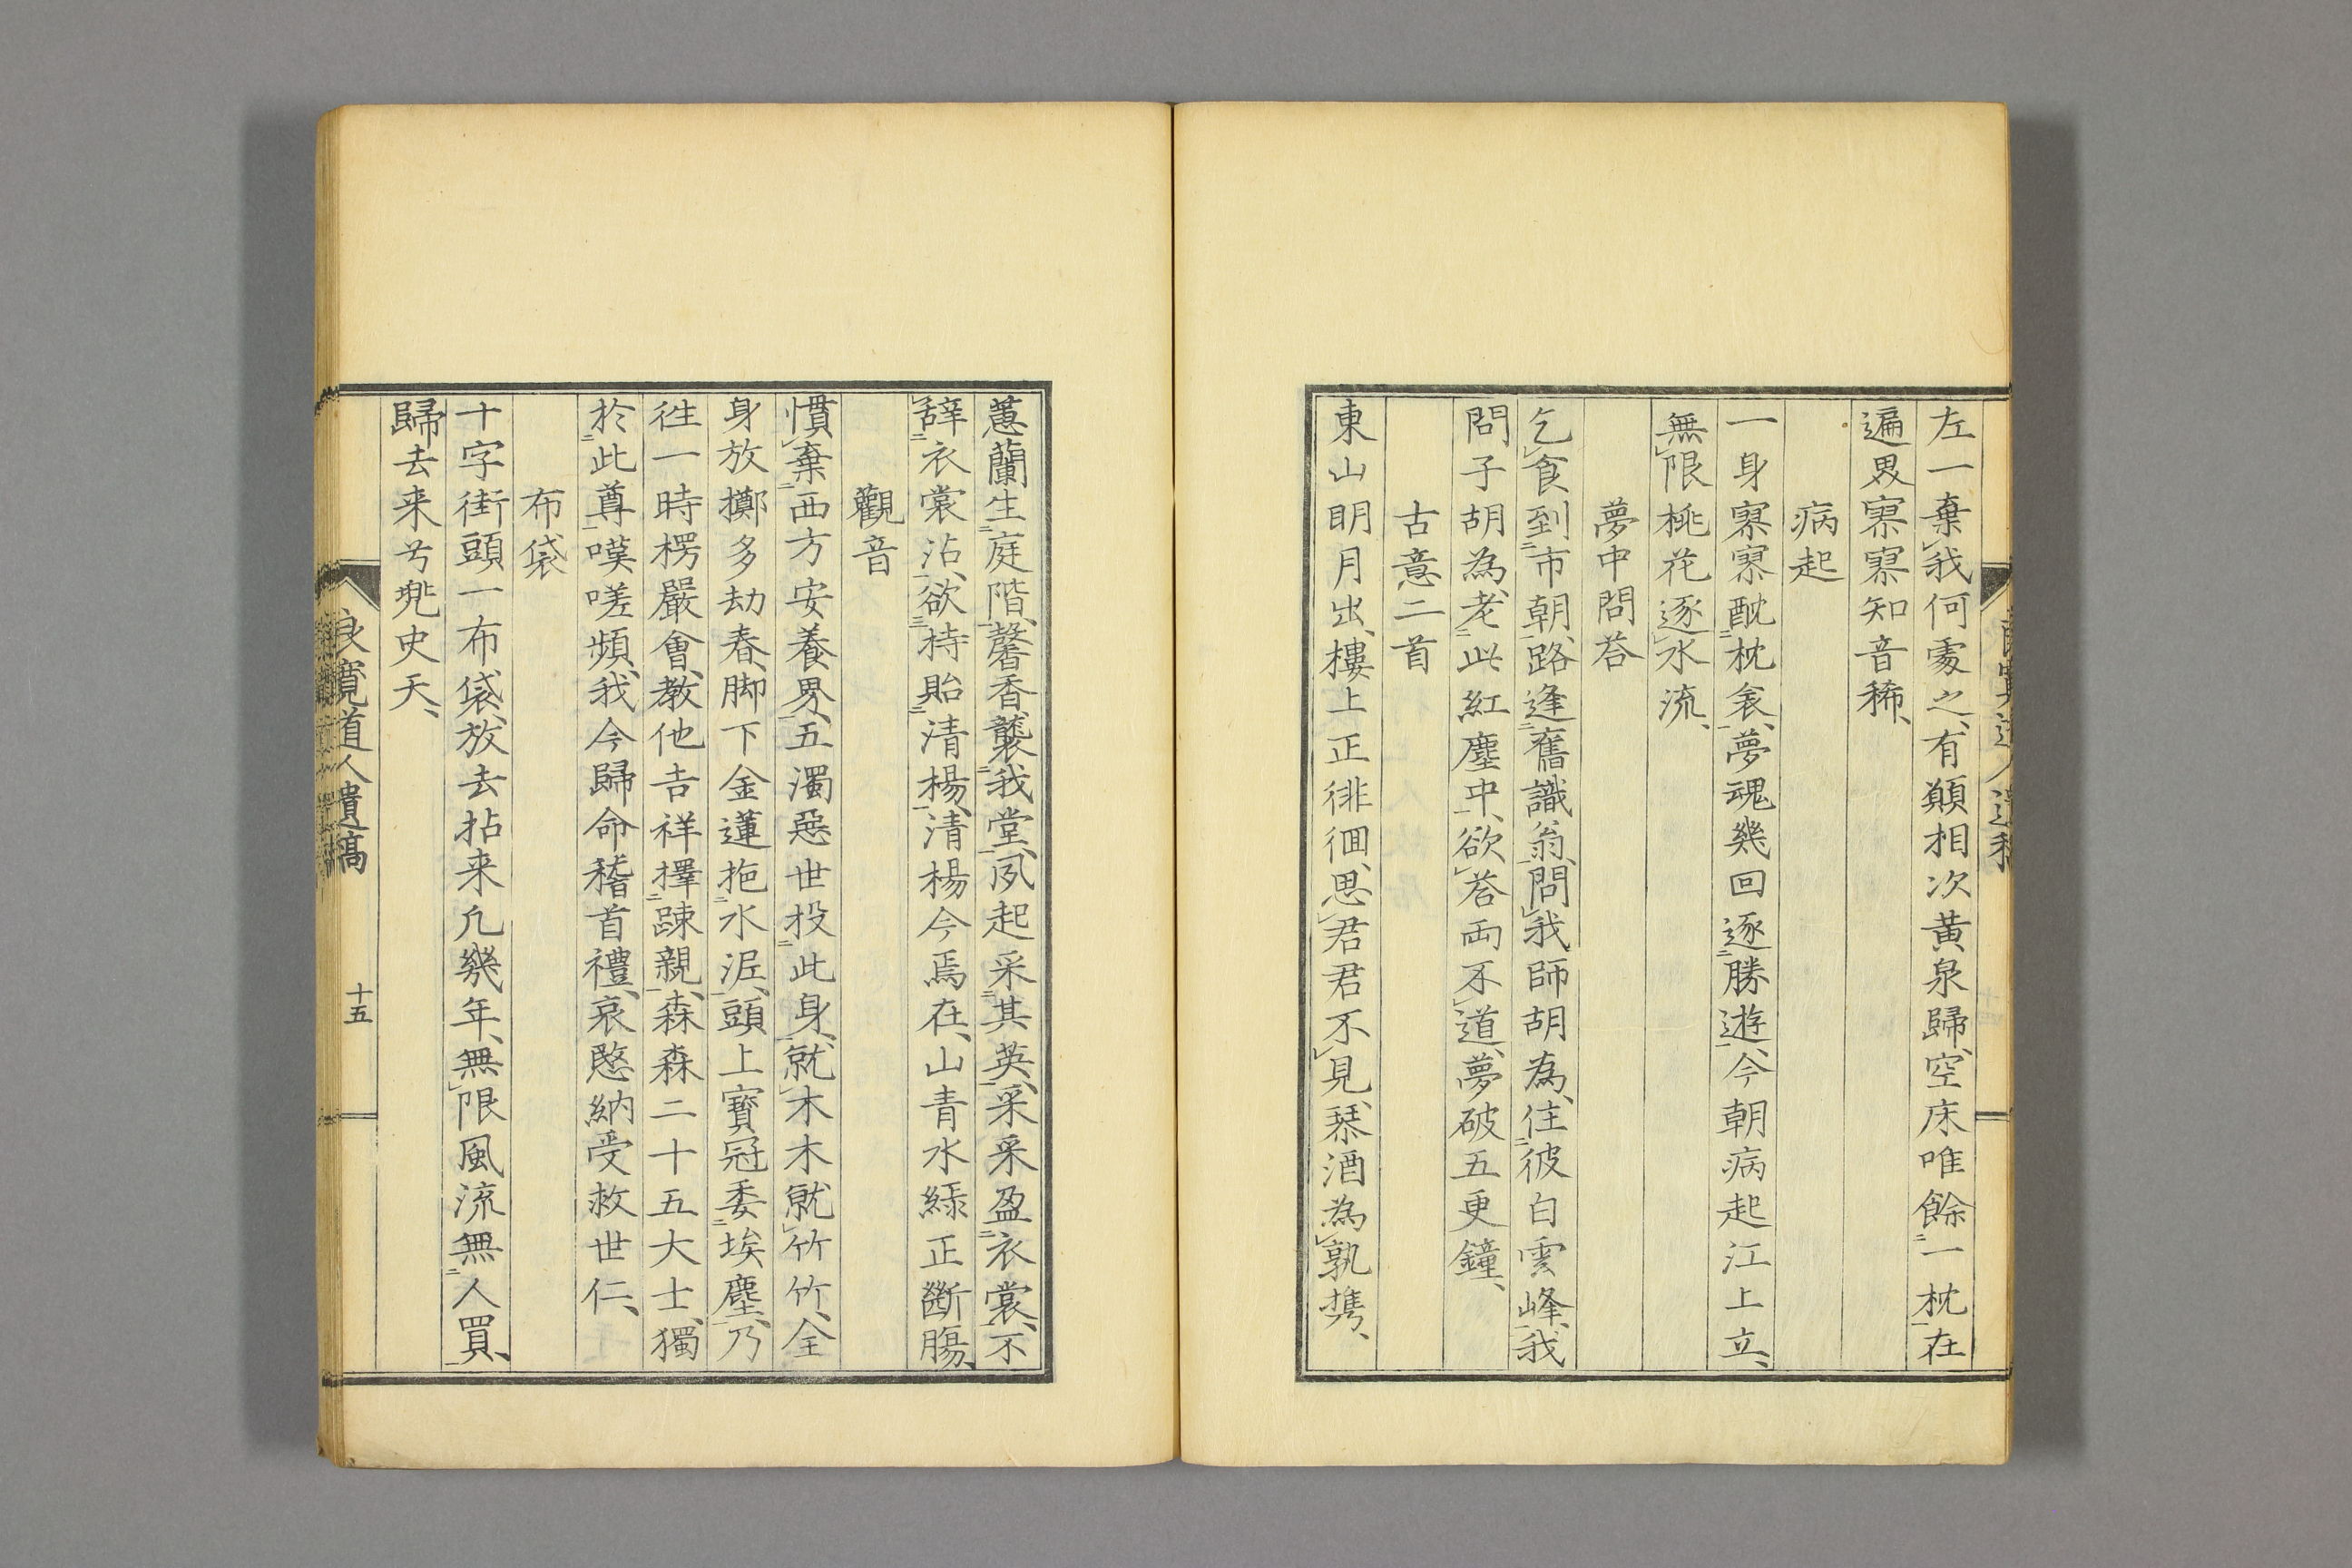 左一棄我何處之、有願相次黄泉歸、空床唯餘一枕在
遍界寥寥知音稀、
病起
一身寥寥耽枕衾、夢魂幾回逐勝遊、今朝病起江上立、
無限桃花逐水流、
夢中問荅
乞食到市朝、路逢舊識翁、問我師胡為、住彼白雲峰、我
問子胡為、老此紅塵中、欲荅両不道、夢破五更鐘、
古意二首
東山明月出、樓上正徘徊、思君君不見、琹酒為孰携、
蕙蘭生庭階、馨香襲我堂、夙起采其英、采采盈衣裳、不
辞衣裳沾、欲持貽清楊、清楊今焉在、山青水緑正斷膓、
觀音
慣棄西方安養界、五濁惡世投此身、就木木就竹竹、全
身放擲多劫春、脚下金蓮拖水泥、頭上寳冠委埃塵、乃
往一時楞嚴會、教他吉祥擇踈親、森森二十五大士、獨
於此尊嘆嗟頻、我今歸命稽首禮、哀愍納受救世仁、
布袋
十字街頭一布袋、放去拈来凢幾年、無限風流無人買、
歸去来兮兠史天、
良寛道人遺稿
十五